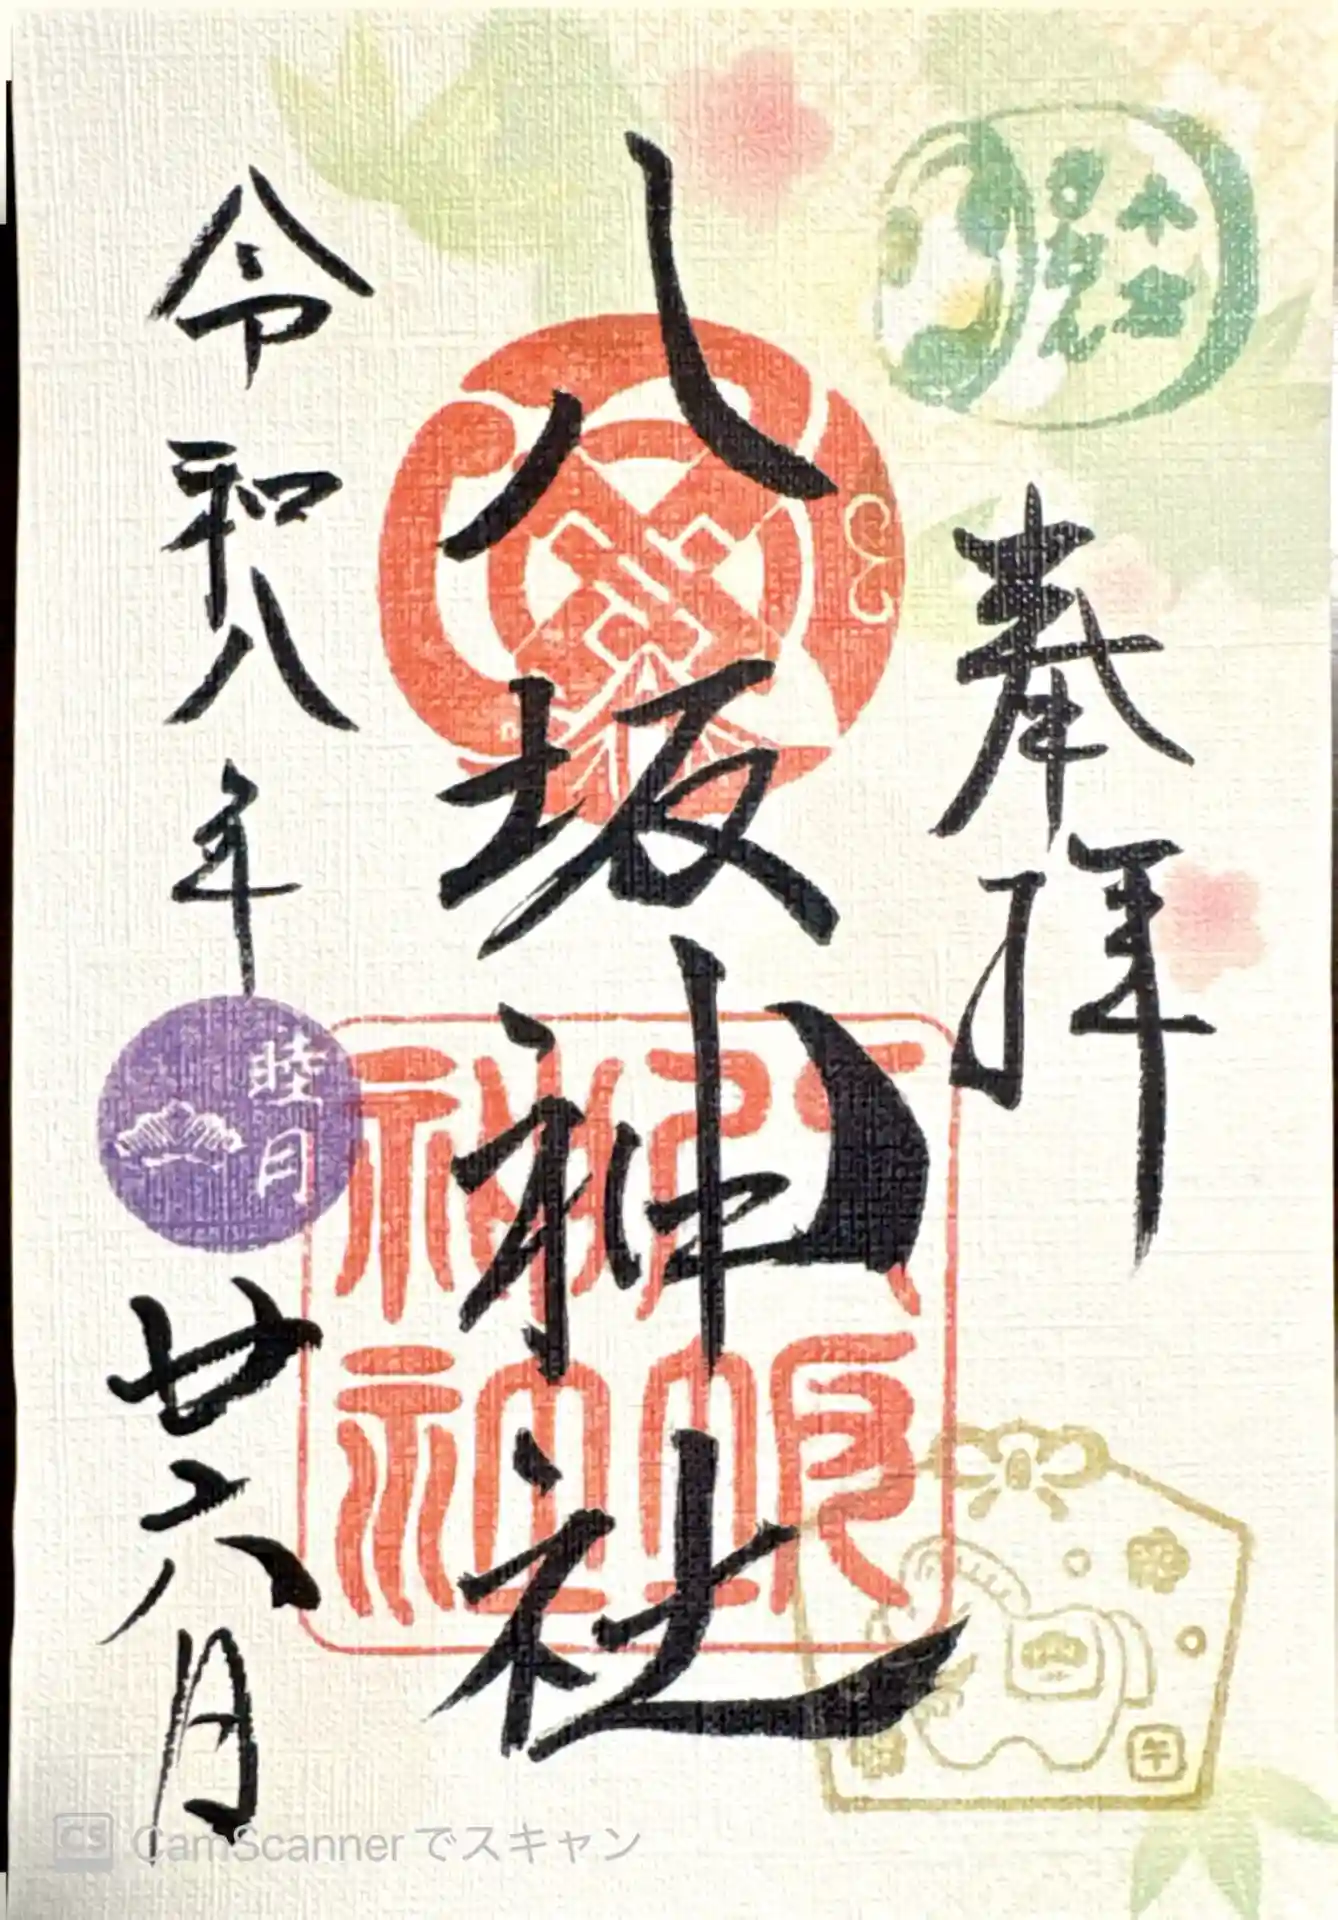 奉拝
八坂神社
令和八年
睦月
廿六日
午
CamScanner でスキャン